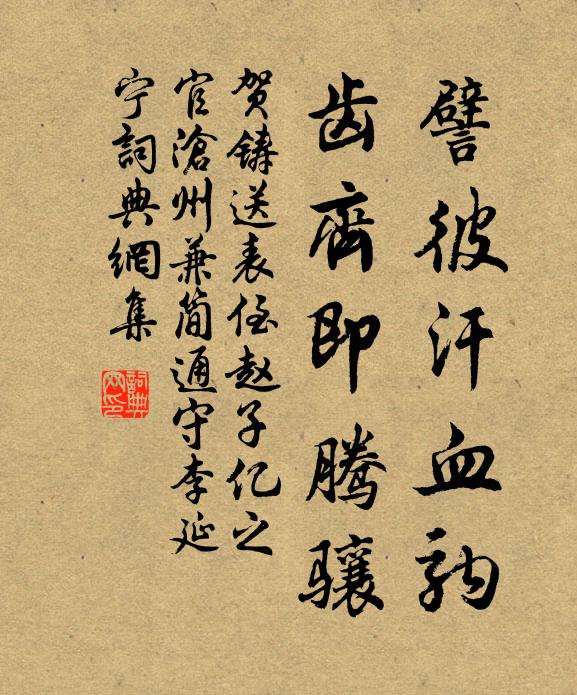 譬彼汗血驹
齿齐即腾骧
贺铸送表侄赵子亿之
官滄州兼简通守李延
宁詞典網集
詞典网印